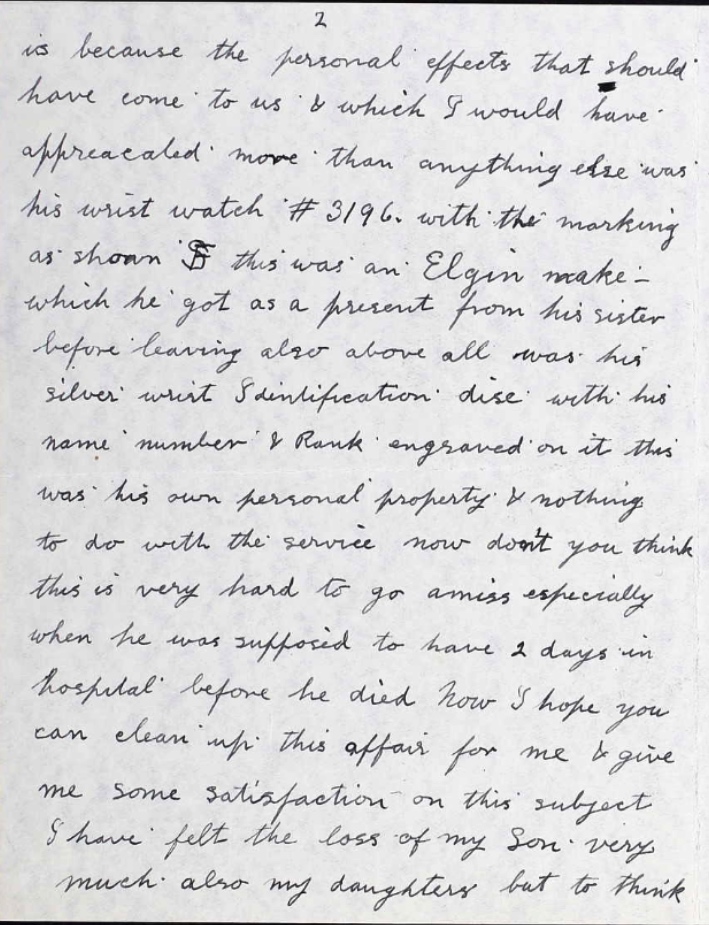 2
is because the personal effects that should
have come to us & which I would have
appreacaled more than anything else was
his wrist watch # 3196. with the marking
as shoan this was an Elgin make -
which he got as a present from his sister
before leaving also above all was his
silver wrist Idintification disc with his
name number & Rank engraved on it this
was his own personal property & nothing
to do with the service now don't you think
this is very hard to go amiss especially
when he was supposed to have 2 days in
hospital before he died Now I hope you
can clean up this affair for me & give
me some satisfaction on this subject
I have felt the loss of my Son very
much also my daughters but to think